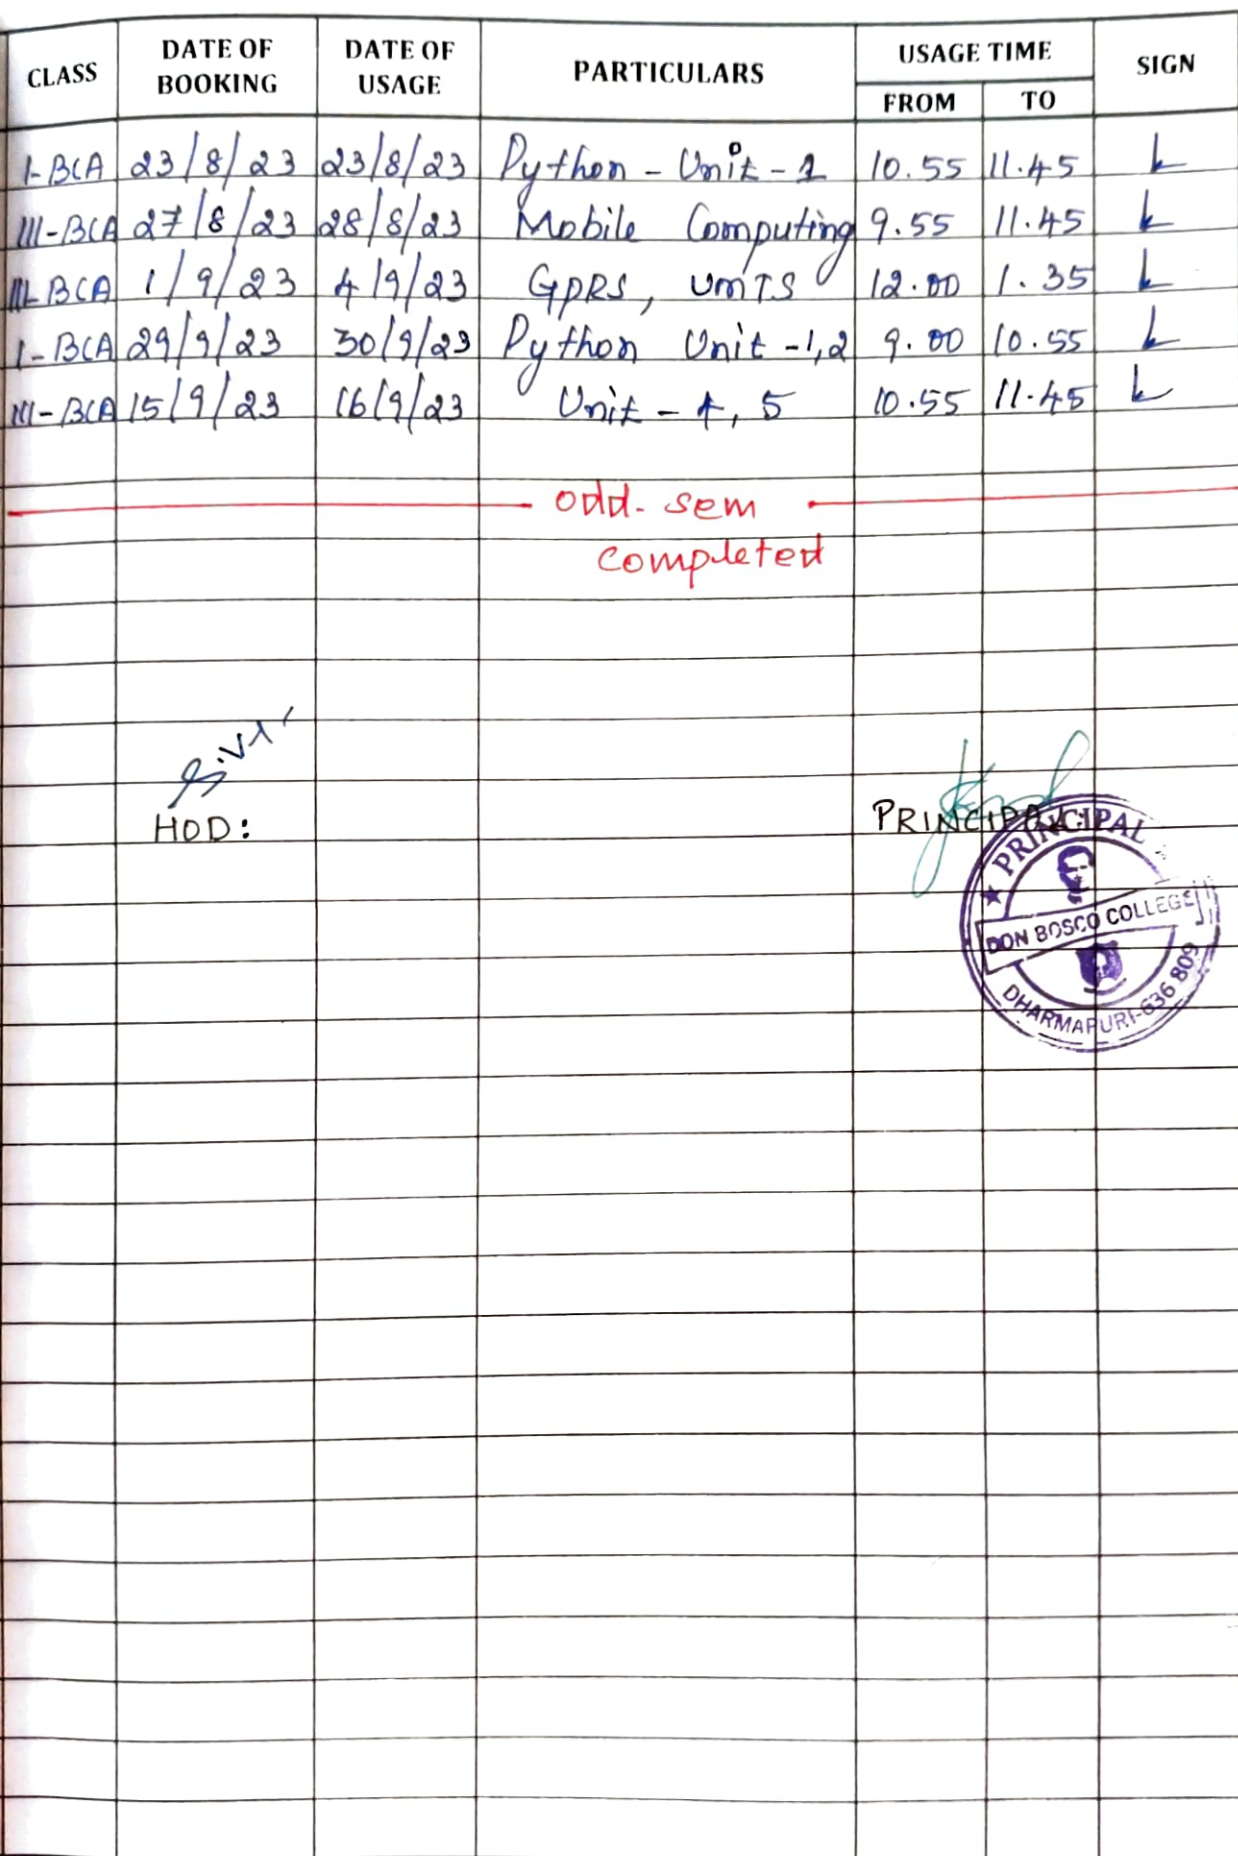 CLASS DATE OF BOOKING DATE OF USAGE PARTICULARS USAGE TIME FROM TO SIGN
I-BCA 23/8/23 23/8/23 Python - Unit - 1 10.55 11.45
III-BCA 27/8/23 28/8/23 Mobile Computing 9.55 11.45
III-BCA 1/9/23 4/9/23 GPRS, UMTS 12.00 1.35
I-BCA 29/9/23 30/9/23 Python Unit -1,2 9.00 10.55
III-BCA 15/9/23 16/9/23 Unit - 4, 5 10.55 11.45
odd- sem
completed
HOD:
PRINCIPAL:
★ PRINCIPAL
DON BOSCO COLLEGE
DHARMAPURI-636 809